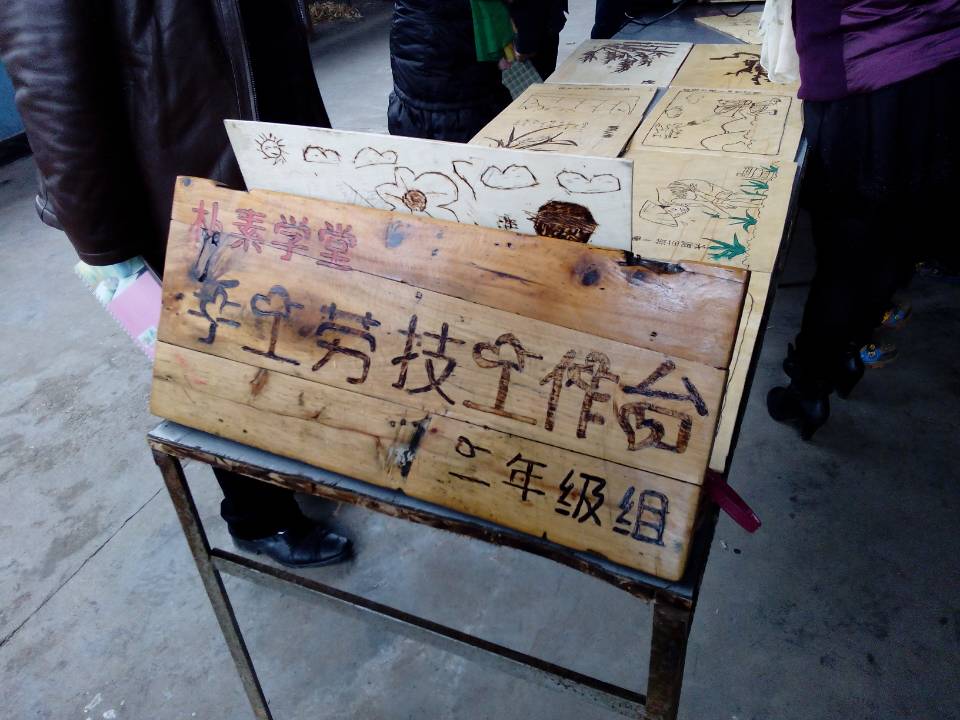 朴素学堂
手工劳技工作台
二年级组